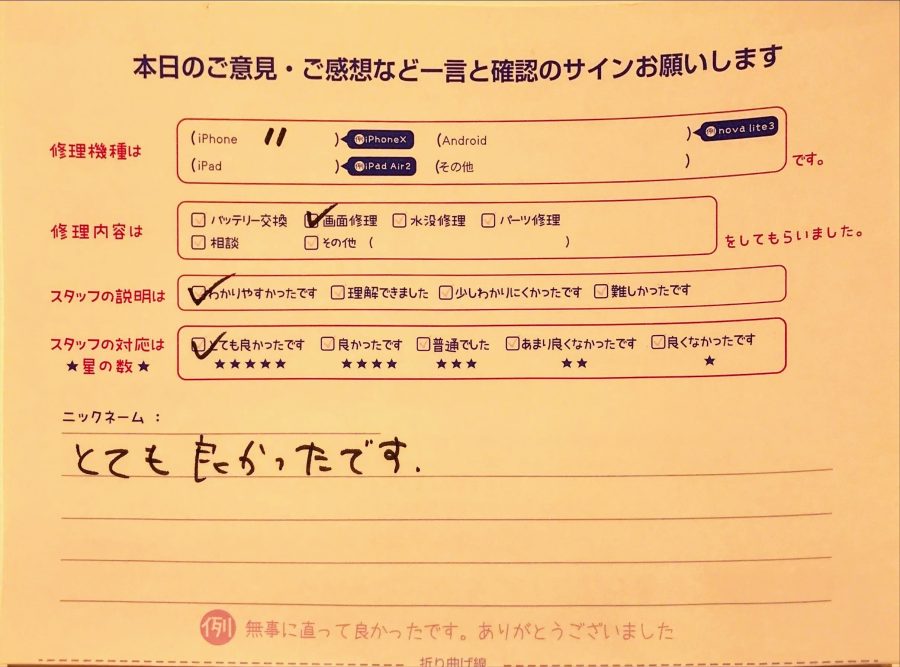 本日のご意見・ご感想など一言と確認のサインお願いします
修理機種は (iPhone 11 ) 例iPhoneX (Android ) 例nova lite3
(iPad ) 例iPad Air2 (その他 ) です。
修理内容は バッテリー交換 画面修理 水没修理 パーツ修理
相談 その他 ( ) をしてもらいました。
スタッフの説明は わかりやすかったです 理解できました 少しわかりにくかったです 難しかったです
スタッフの対応は とても良かったです 良かったです 普通でした あまり良くなかったです 良くなかったです
★星の数★ ★★★★★ ★★★★ ★★★ ★★ ★
ニックネーム：
とても良かったです.
例 無事に直って良かったです。ありがとうございました
折り曲げ線